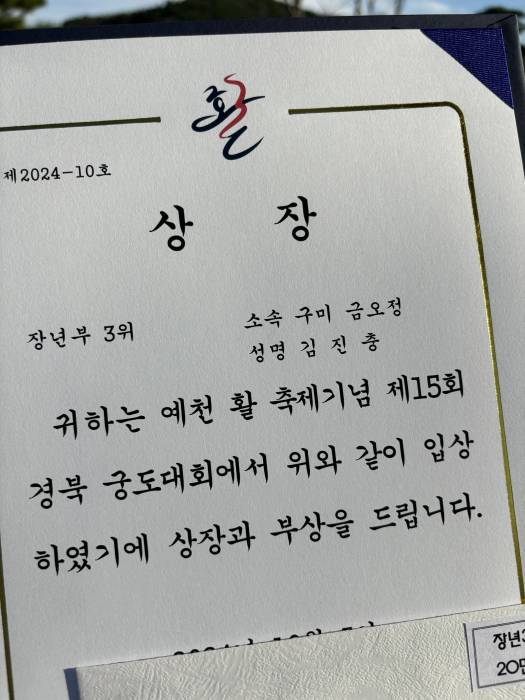 활
제2024-10호
상 장
장년부 3위
소속 구미 금오정
성명 김 진 충
귀하는 예천 활 축제기념 제15회
경북 궁도대회에서 위와 같이 입상
하였기에 상장과 부상을 드립니다.